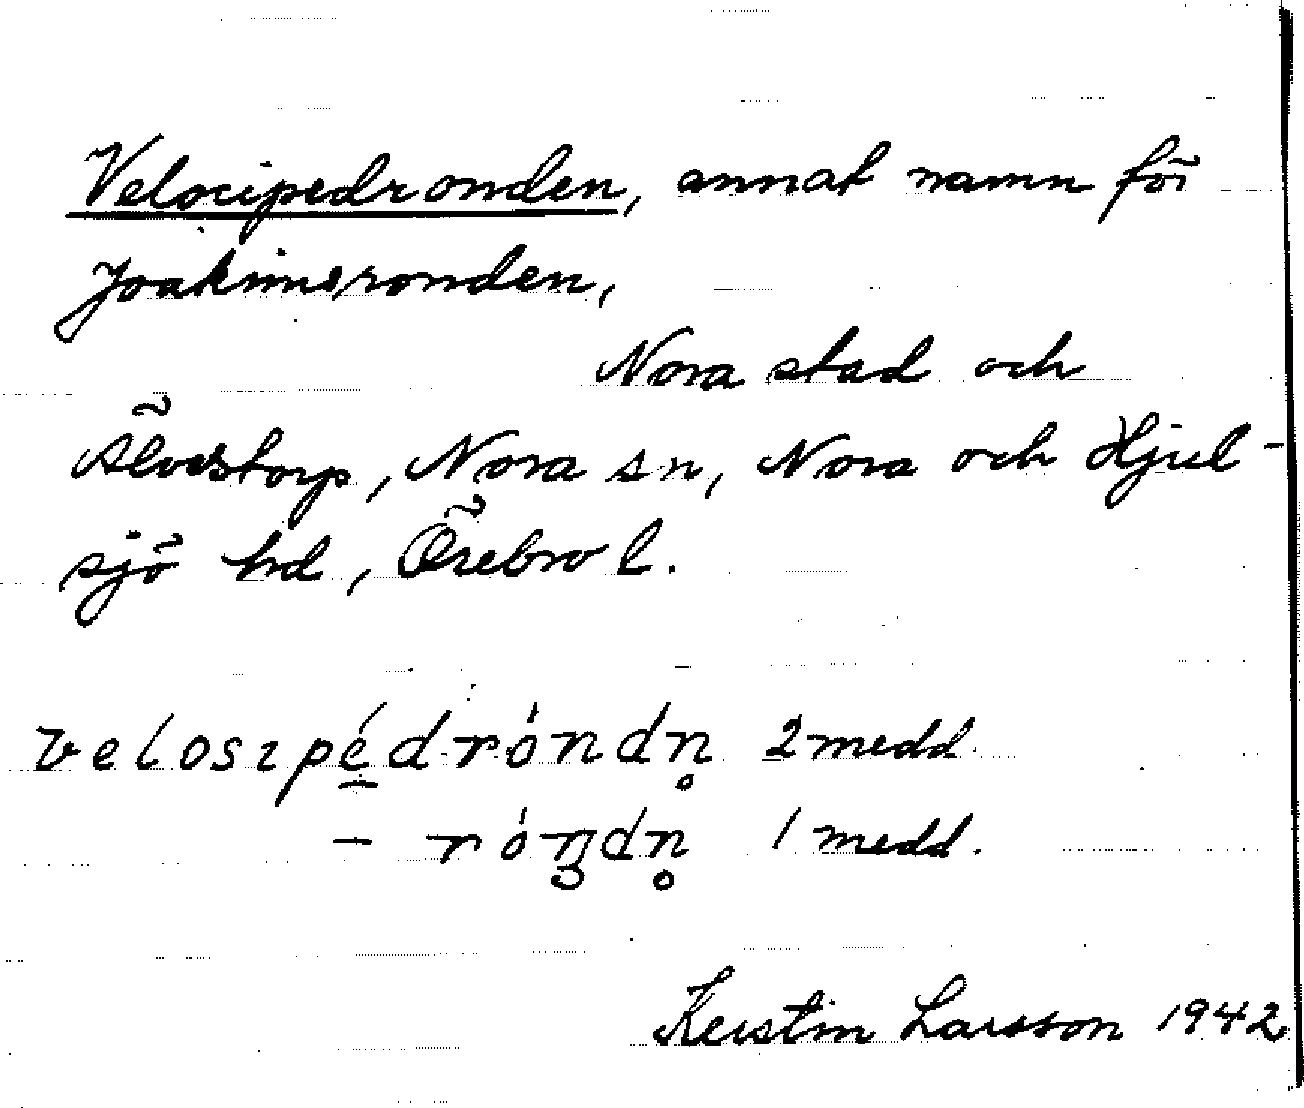 Velocipedronden, annat namn för
Joakimsronden,
Nora stad och
Älvstorp, Nora sn, Nora och Hjul-
sjö hd, Örebro l.
velosipédróndn̥ 2 medd.
– róŋdn̥ 1 medd.
Kerstin Larsson 1942